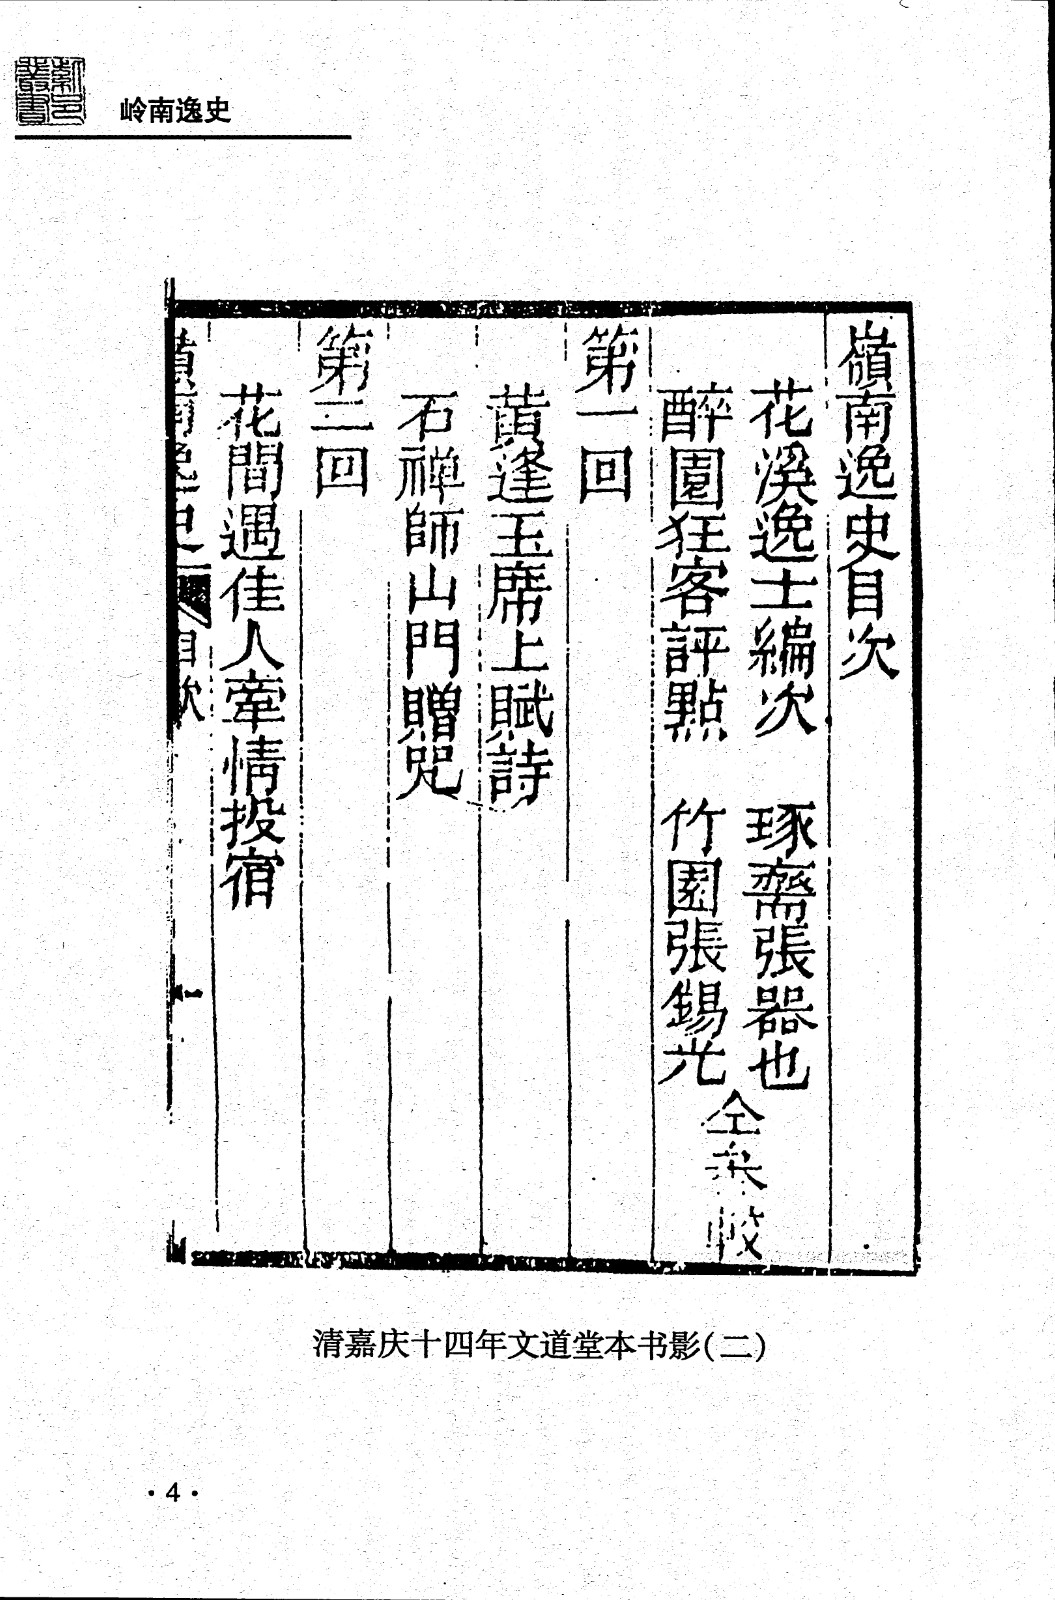 岭南逸史
嶺南逸史目次
花溪逸士編次　琢齋張器也
醉園狂客評點　竹園張錫光
仝叅較
第一回
黄逢玉席上賦詩
石禅師山門贈咒
第二回
花間遇佳人牽情投宿
嶺南逸史
目次
一
清嘉庆十四年文道堂本书影(二)
·4·